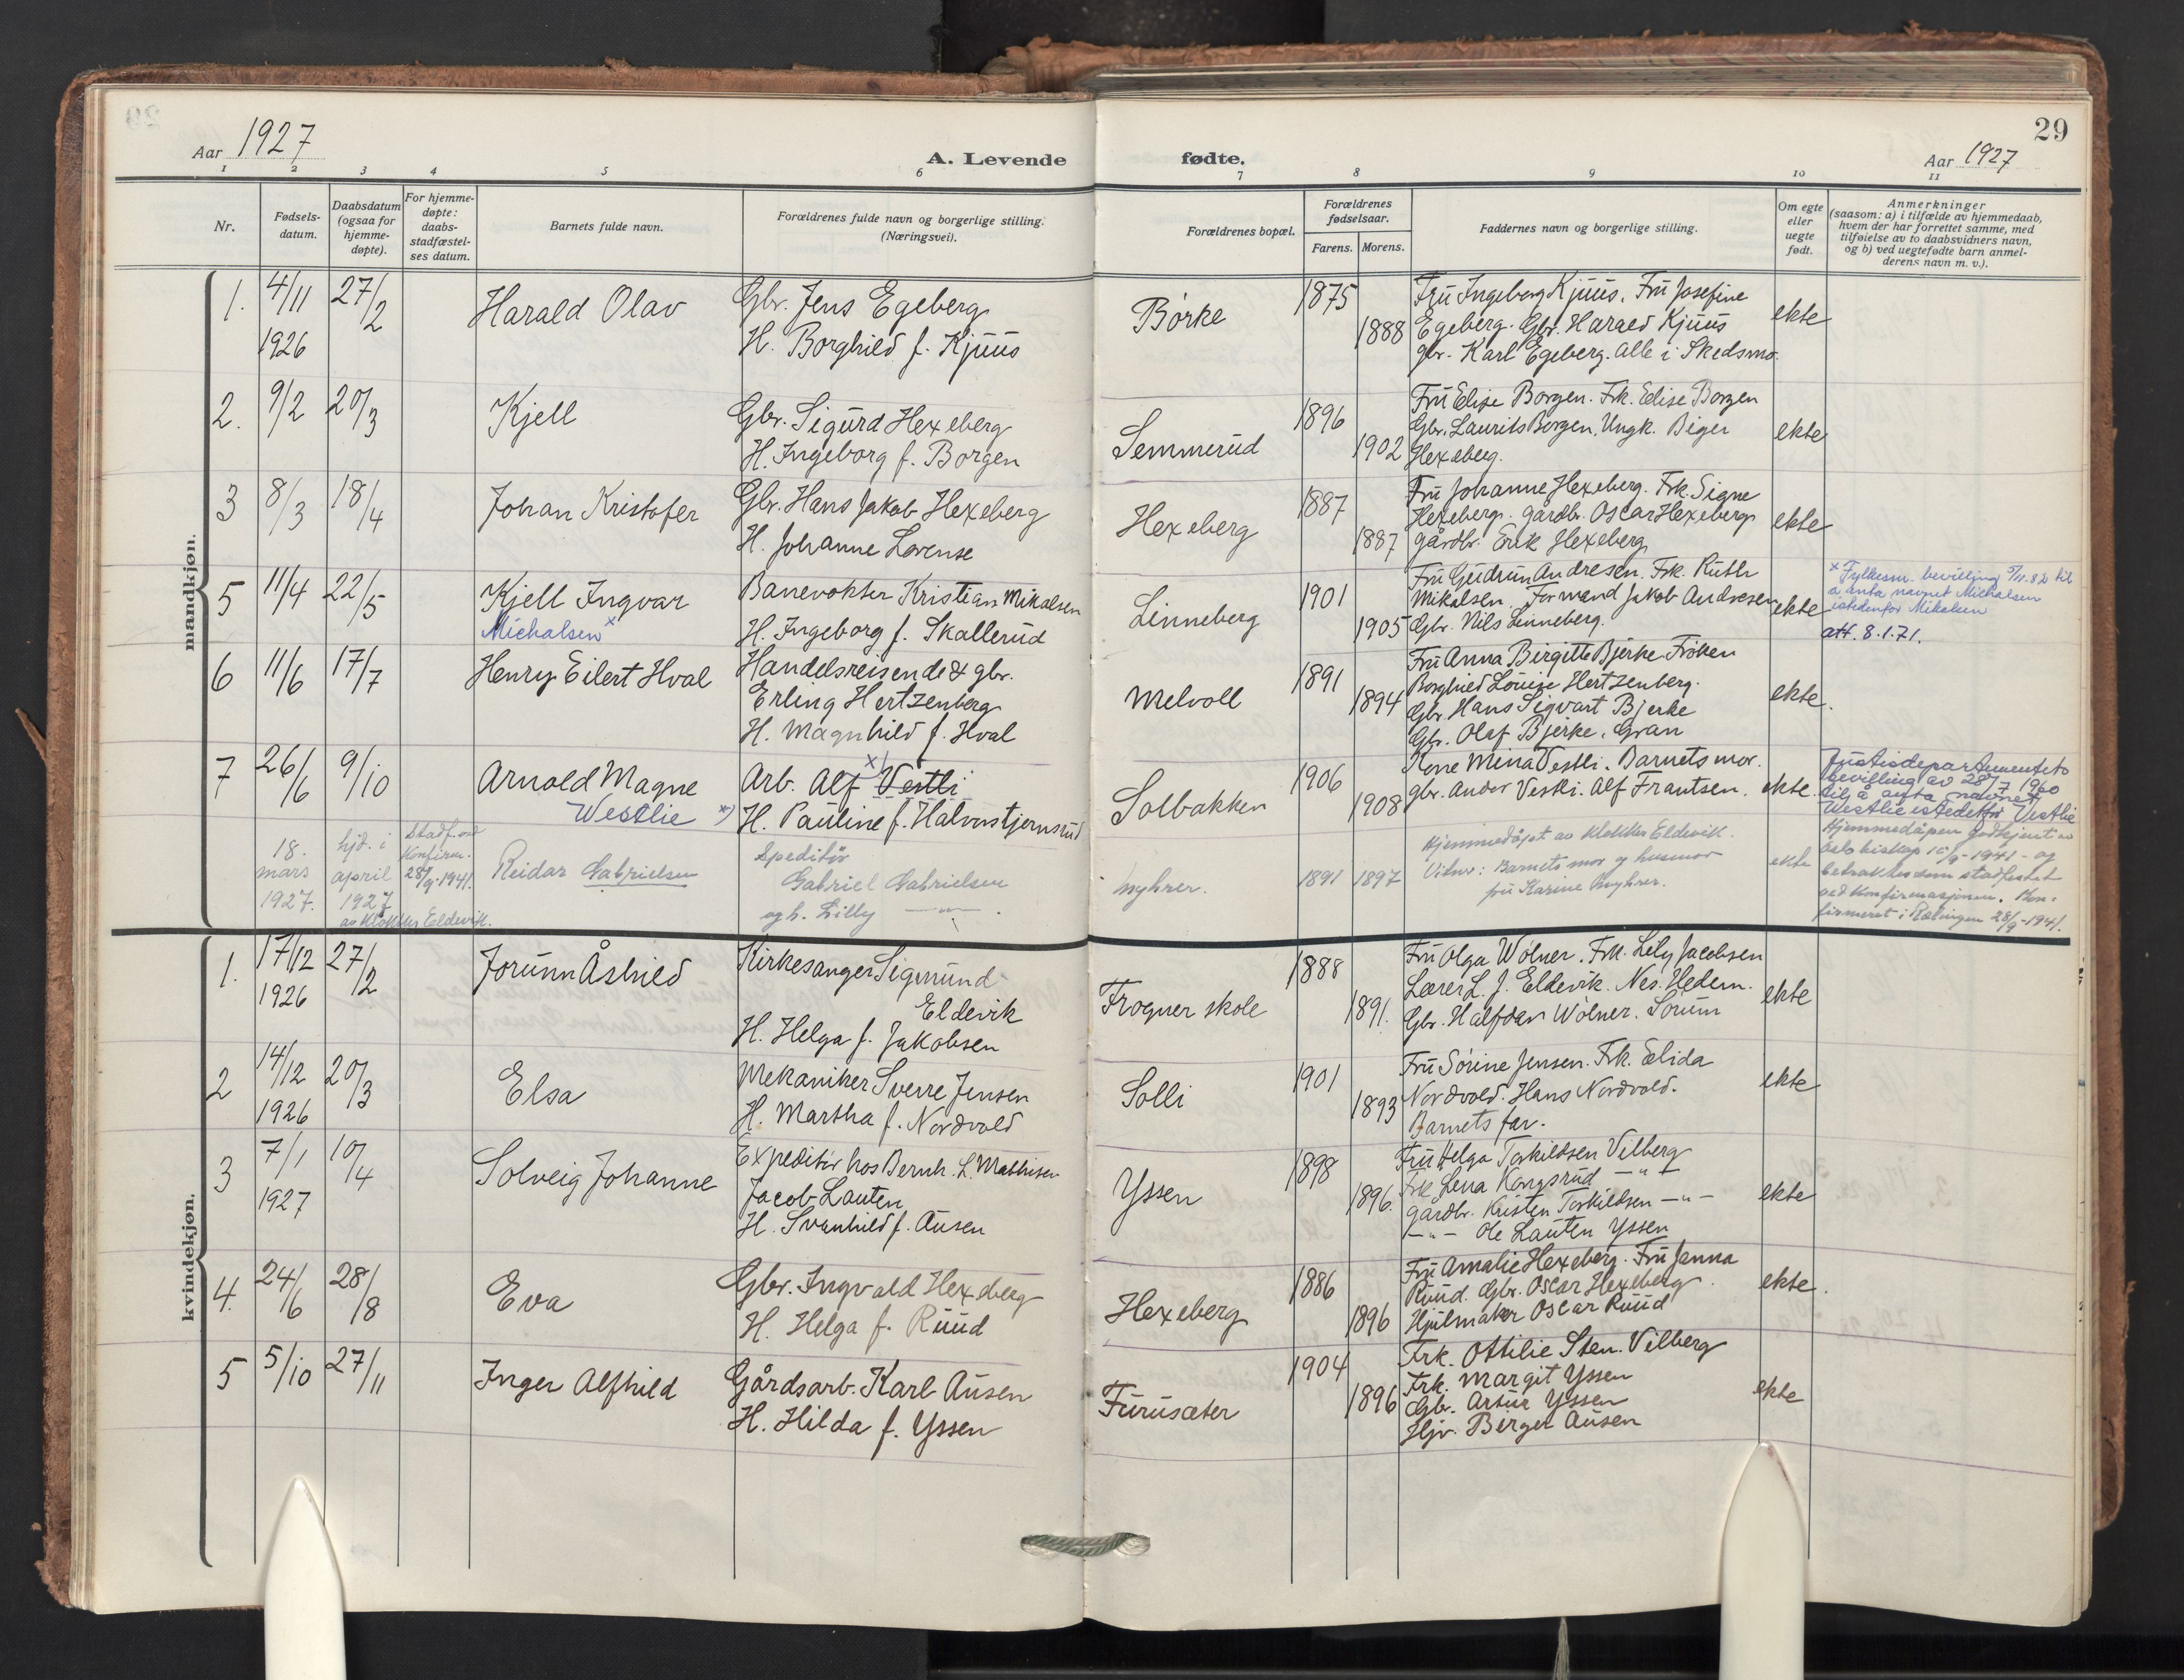 29
Aar 1927
A. Levende fødte.
Aar 1927
1 2 3 4 5 6 7 8 9 10 11
Nr.
Fødsels-
datum.
Daabsdatum
(ogsaa for
hjemme-
døpte).
For hjemme-
døpte:
daabs-
stadfæstel-
ses datum.
Barnets fulde navn.
Forældrenes fulde navn og borgerlige stilling.
(Næringsvei).
Forældrenes bopæl.
Forældrenes
fødselsaar.
Farens. Morens.
Faddernes navn og borgerlige stilling.
Om egte
eller
uegte
født.
Anmerkninger
(saasom: a) i tilfælde av hjemmedaab,
hvem der har forrettet samme, med
tilføielse av to daabsvidners navn,
og b) ved uegtefødte barn anmel-
derens navn m. v.).
mandkjøn.
1. 4/11 1926
27/2
Harald Olav
Gbr. Jens Egeberg
H. Borghild f. Kjuus
Børke
1875
1888
Fru Ingeborg Kjuus. Fru Josefine
Egeberg. Gbr. Harald Kjuus
gbr. Karl Egeberg. alle i Skedsmo.
ekte
2. 9/2
20/3
Kjell
Gbr. Sigurd Hexeberg
H. Ingeborg f. Borgen
Semmerud
1896
1902
Fru Elise Borgen. Frk. Elise Borgen
Gbr. Laurits Borgen, Ungk. Biger
Hexeberg.
ekte
3 8/3
18/4
Johan Kristofer
Gbr. Hans Jakob Hexeberg
H. Johanne Lovense
Hexeberg
1887
1887
Fru Johanne Hexeberg. Frk. Signe
Hexeberg. gårdbr. Oscar Hexeberg
gårdbr. Erik Hexeberg
ekte
5 11/4
22/5
Kjell Ingvar
Michalsen x
Banevokter Kristian Mikalsen
H. Ingeborg f. Skallerud
Linneberg
1901
1905
Fru Gudrun Andresen. Frk. Ruth
Mikalsen. Formand Jakob Andresen
Gbr. Nils Linneberg.
ekte
x Fylkesm. bevilling 5/11.82 til
å anta navnet Michalsen
istedenfor Mikalsen
att. 8.1.71.
6 11/6
17/7
Henry Eilert Hval
Handelsreisende & gbr.
Erling Hertzenberg
H. Magnhild f. Hval
Melvoll
1891
1894
Fru Anna Birgitte Bjerke Frøken
Borghild Louise Hertzenberg.
Gbr. Hans Sigvart Bjerke
Gbr. Olaf Bjerke, Gran
ekte.
7 26/6
9/10
Arnold Magne
Westlie x)
Arb. Alf Vestli x)
H. Pauline f. Halvorstjernsrud
Solbakken
1906
1908
Kone Mina Vestli. Barnets mor.
gbr. Andor Vestli. Alf Frantsen.
ekte.
Justisdepartementets
bevilling av 28/7 1960
til å anta navnet
Westlie istedetfor Vestlie
18.
mars
1927.
hjd. i
april
1927
av klokker Eldevik.
Stadf. ved
Konfirm.
28/9-1941.
Reidar Gabrielsen
Speditør
Gabriel Gabrielsen
og h. Lilly —"—.
Myhrer.
1891 1897
Hjemmedøpt av klokker Eldevik.
Vitner: Barnets mor og husmor
fru Karine Myhrer.
ekte
Hjemmedåpen godkjent av
Oslo biskop 15/9-1941 - og
betraktes som stadfestet
ved Konfirmasjonen. Kon-
firmeret i Rælingen 28/9-1941.
kvindekjøn.
1. 17/12 1926
27/2
Jorunn Åshild
Kirkesanger Sigmund
Eldevik
H. Helga f. Jakobsen
Frogner skole
1888
1891.
Fru Olga Wølner. Frk. Lily Jacobsen
Lærer L. J. Eldevik. Nes. Hedem.
Gbr. Halfdan Wølner. Sørum
ekte
2 14/12 1926
20/3
Elsa
Mekaniker Sverre Jensen
H. Martha f. Nordvold
Solli
1901
1893
Fru Sørine Jensen. Frk. Elida
Nordvold. Hans Nordvold.
Barnets far.
ekte
3 7/1 1927
10/4
Solveig Johanne
Expeditør hos Bernh. L. Mathisen
Jacob Lauten
H. Svanhild f. Ausen
Yssen
1898
1896.
Fru Helga Torkildsen Vilberg
Frk Lena Kongsrud —"—
gårdbr. Kristen Torkildsen —"—
—"— Ole Lauten Yssen
ekte
4. 24/6
28/8
Eva
Gbr. Ingvald Hexeberg
H. Helga f. Ruud
Hexeberg
1886
1896
Fru Amalie Hexeberg. Fru Janna
Ruud. Gbr. Oscar Hexeberg.
Hjulmaker Oscar Ruud
ekte.
5 5/10
27/11
Inger Alfhild
Gårdsarb. Karl Ausen
H. Hilda f. Yssen
Furusæter
1904
1896
Frk. Ottilie Sten. Vilberg
Frk. Margit Yssen
Gbr. Artur Yssen
Hjv. Birger Ausen
ekte